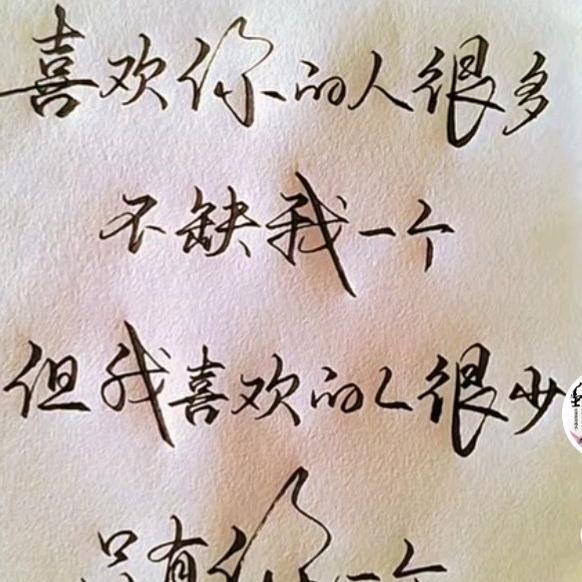 喜欢你的人很多
不缺我一个
但我喜欢的人很少
只有你一个